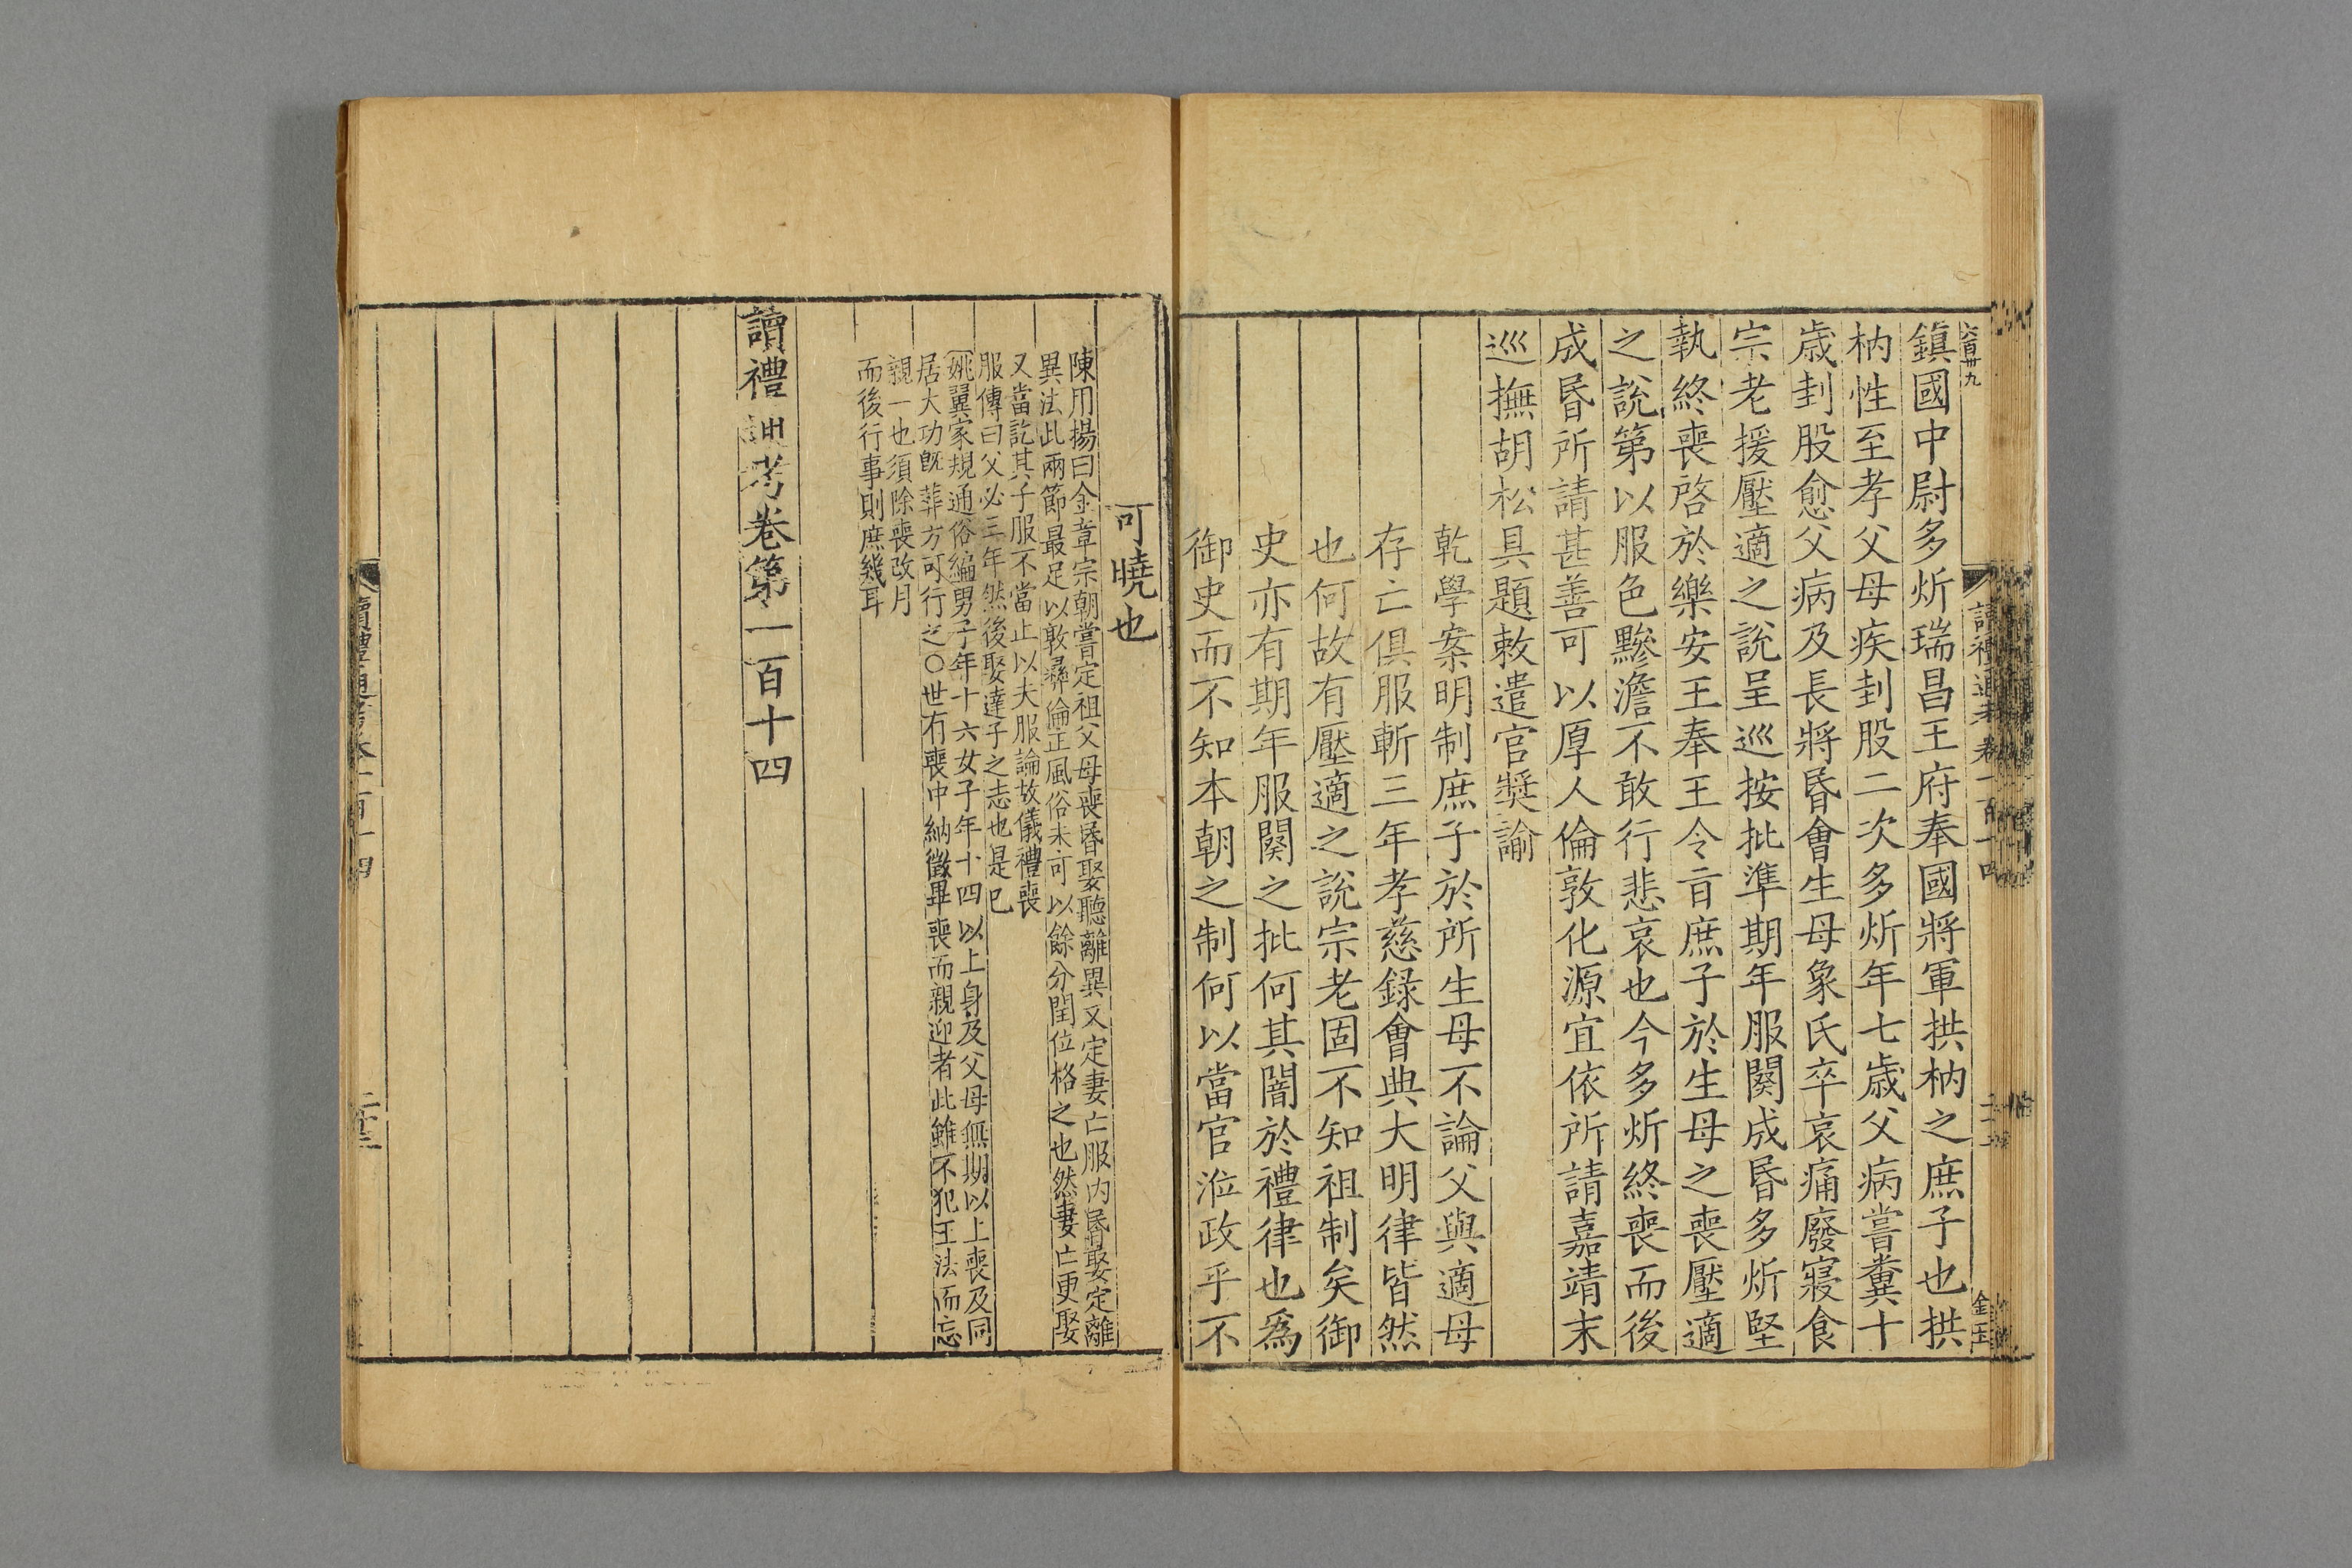 鎮國中尉多炘瑞昌王府奉國將軍拱枘之庶子也拱
枘性至孝父母疾刲股二次多炘年七歲父病嘗糞十
歲刲股愈父病及長將昏會生母象氏卒哀痛廢寢食
宗老援壓適之說呈巡按批準期年服闋成昏多炘堅
執終喪啓於樂安王奉王令旨庶子於生母之喪壓適
之說第以服色黲澹不敢行悲哀也今多炘終喪而後
成昏所請甚善可以厚人倫敦化源宜依所請嘉靖末
巡撫胡松具題敕遣官奬諭
乾學案明制庶子於所生母不論父與適母
存亡俱服斬三年孝慈録會典大明律皆然
也何故有壓適之說宗老固不知祖制矣御
史亦有期年服闋之批何其闇於禮律也爲
御史而不知本朝之制何以當官涖政乎不
可曉也
陳用揚曰金章宗朝嘗定祖父母喪昏娶聽離異又定妻亡服内昏娶定離
異法此兩節最足以敦彞倫正風俗未可以餘分閏位格之也然妻亡更娶
又當訖其子服不當止以夫服論故儀禮喪
服傳曰父必三年然後娶達子之志也是已
姚翼家規通俗編男子年十六女子年十四以上身及父母無期以上喪及同
居大功旣葬方可行之〇世有喪中納徵畢喪而親迎者此雖不犯王法而忘
親一也須除喪改月
而後行事則庶幾耳
讀禮通考卷第一百十四
讀禮通考卷一百十四
二十三